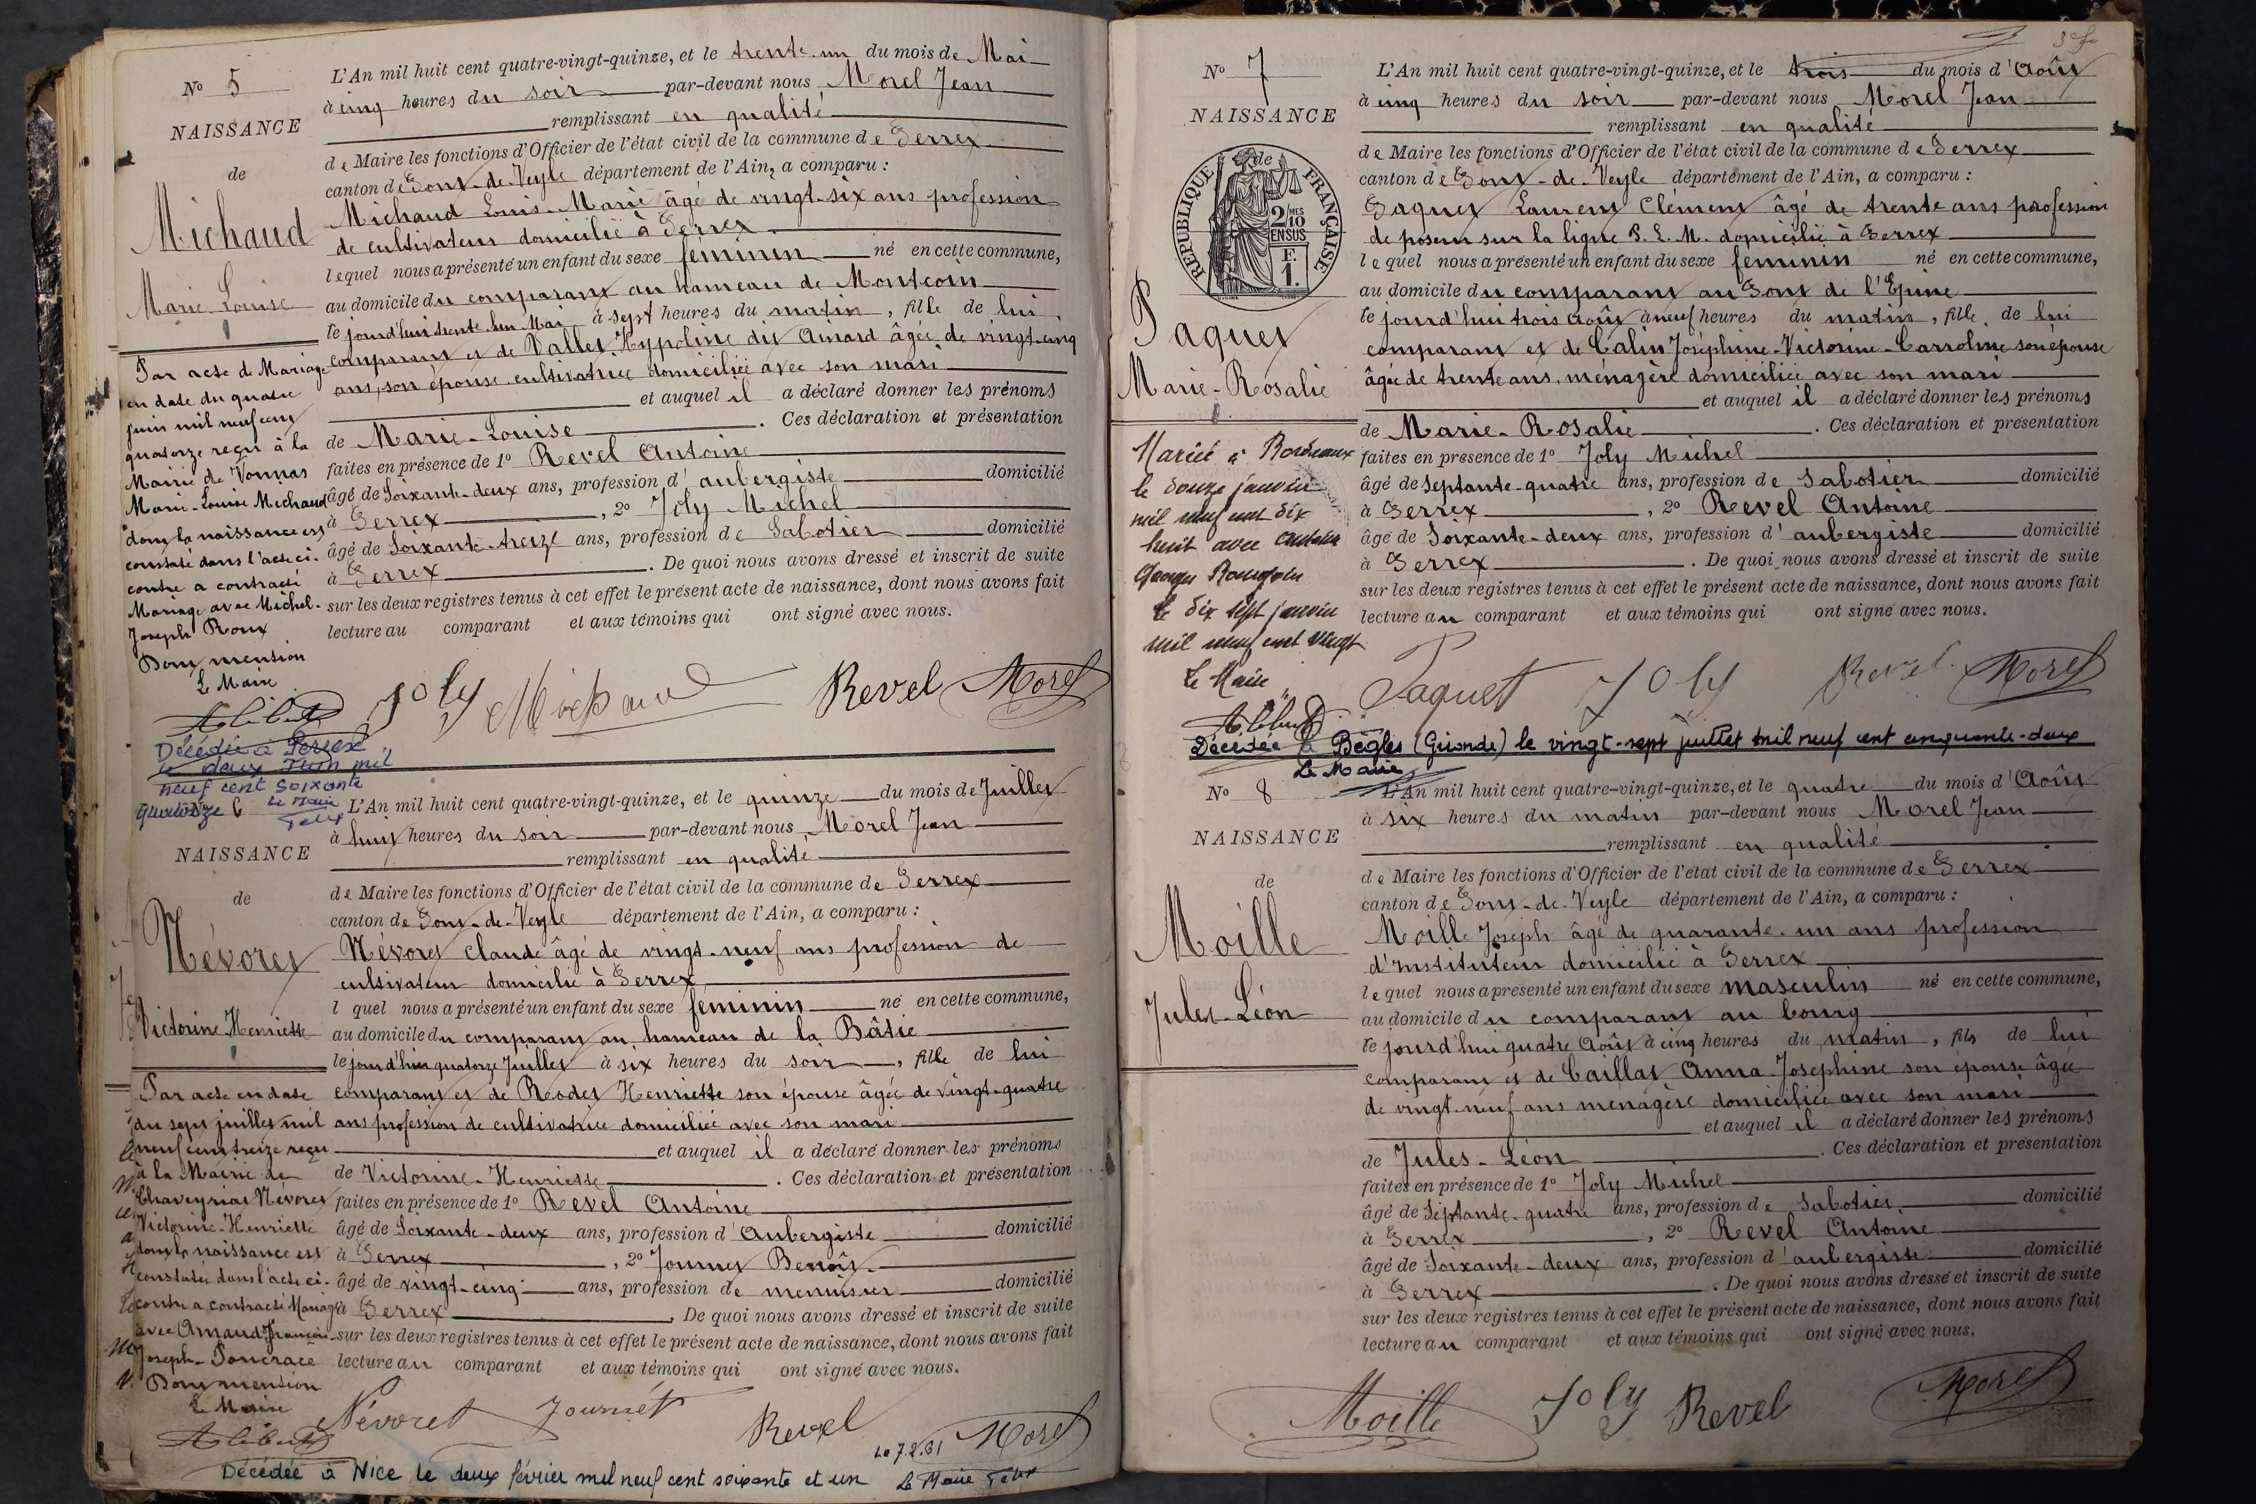 No 5
NAISSANCE
de
Michaud
Marie Louise
L'An mil huit cent quatre-vingt-quinze, et le trente-un du mois de Mai
à cinq heures du soir par-devant nous Morel Jean
remplissant en qualité
de Maire les fonctions d'Officier de l'état civil de la commune de Perrex
canton de Pont-de-Veyle département de l'Ain, a comparu :
Michaud Louis-Marie âgé de vingt-six ans profession
de cultivateur domicilié à Perrex
lequel nous a présenté un enfant du sexe féminin né en cette commune,
au domicile du comparant au hameau de Montcoin
le jourd'hui trente un Mai à sept heures du matin, fille de lui
comparant et de Vallet Hypoline dit Ainard âgée de vingt-cinq
ans, son épouse cultivatrice domiciliée avec son mari
et auquel il a déclaré donner les prénoms
de Marie-Louise. Ces déclaration et présentation
faites en présence de 1o Revel Antoine
âgé de Soixante-deux ans, profession d'aubergiste domicilié
à Perrex, 2o Joly Michel
âgé de Soixante-treize ans, profession de Sabotier domicilié
à Perrex. De quoi nous avons dressé et inscrit de suite
sur les deux registres tenus à cet effet le présent acte de naissance, dont nous avons fait
lecture au comparant et aux témoins qui ont signé avec nous.
Par acte de Mariage
en date du quatre
juin mil neuf cent
quatorze reçu à la
Mairie de Vonnas
Marie-Louise Michaud
dont la naissance est
constaté dans l'acte ci-
contre a contracté
Mariage avec Michel-
Joseph Roux
Dont mention
Le Maire
Joly Michaud Revel Morel
Décédée à Perrex
le deux Juin mil
neuf cent soixante
quatorze
Le Maire
No 6
NAISSANCE
de
Névoret
Victorine Henriette
L'An mil huit cent quatre-vingt-quinze, et le quinze du mois de Juillet
à huit heures du soir par-devant nous Morel Jean
remplissant en qualité
de Maire les fonctions d'Officier de l'état civil de la commune de Perrex
canton de Pont-de-Veyle département de l'Ain, a comparu :
Névoret Claude âgé de vingt-neuf ans profession de
cultivateur domicilié à Perrex
l quel nous a présenté un enfant du sexe féminin né en cette commune,
au domicile du comparant au hameau de la Bâtie
le jourd'hier quatorze Juillet à six heures du soir, fille de lui
comparant et de Réodet Henriette son épouse âgée de vingt-quatre
ans profession de cultivatrice domiciliée avec son mari
et auquel il a déclaré donner les prénoms
de Victorine-Henriette. Ces déclaration et présentation
faites en présence de 1o Revel Antoine
âgé de Soixante-deux ans, profession d'Aubergiste domicilié
à Perrex, 2o Journet Benoît
âgé de vingt-cinq ans, profession de menuisier domicilié
à Perrex. De quoi nous avons dressé et inscrit de suite
sur les deux registres tenus à cet effet le présent acte de naissance, dont nous avons fait
lecture au comparant et aux témoins qui ont signé avec nous.
Par acte en date
du sept juillet mil
neuf cent treize reçu
à la Mairie de
Chaveyriat Névoret
Victorine-Henriette
dont la naissance est
constatée dans l'acte ci-
contre a contracté Mariage
avec Amaud François
Joseph-Poncrace
Dont mention
Le Maire
Névoret Journet Revel Morel
Décédée à Nice le deux février mil neuf cent soixante et un
Le 7.2.61
Le Maire
No 7
NAISSANCE
de
RÉPUBLIQUE FRANÇAISE
2/10
MES
EN SUS
F.
1.
Paquet
Marie-Rosalie
L'An mil huit cent quatre-vingt-quinze, et le trois du mois d'Août
à cinq heures du soir par-devant nous Morel Jean
remplissant en qualité
de Maire les fonctions d'Officier de l'état civil de la commune de Perrex
canton de Pont-de-Veyle département de l'Ain, a comparu :
Paquet Laurent Clément âgé de trente ans profession
de poseur sur la ligne P. L. M. domicilié à Perrex
lequel nous a présenté un enfant du sexe féminin né en cette commune,
au domicile du comparant au Pont de l'Epine
le jourd'hui trois Août à neuf heures du matin, fille de lui
comparant et de Calin Joséphine-Victorine-Carroline son épouse
âgée de trente ans, ménagère domiciliée avec son mari
et auquel il a déclaré donner les prénoms
de Marie-Rosalie. Ces déclaration et présentation
faites en présence de 1o Joly Michel
âgé de Septante-quatre ans, profession de Sabotier domicilié
à Perrex, 2o Revel Antoine
âgé de Soixante-deux ans, profession d'aubergiste domicilié
à Perrex. De quoi nous avons dressé et inscrit de suite
sur les deux registres tenus à cet effet le présent acte de naissance, dont nous avons fait
lecture au comparant et aux témoins qui ont signé avec nous.
Mariée à Bordeaux
le douze janvier
mil neuf cent dix
huit avec
Georges
le dix sept janvier
mil neuf cent vingt
Le Maire
Paquet Joly Revel Morel
Décédée à Bègles (Gironde) le vingt-sept juillet mil neuf cent cinquante-deux
Le Maire
No 8
NAISSANCE
de
Moille
Jules-Léon
L'An mil huit cent quatre-vingt-quinze, et le quatre du mois d'Août
à six heures du matin par-devant nous Morel Jean
remplissant en qualité
de Maire les fonctions d'Officier de l'état civil de la commune de Perrex
canton de Pont-de-Veyle département de l'Ain, a comparu :
Moille Joseph âgé de quarante-un ans profession
d'instituteur domicilié à Perrex
lequel nous a présenté un enfant du sexe masculin né en cette commune,
au domicile du comparant au bourg
le jourd'hui quatre Août à cinq heures du matin, fils de lui
comparant et de Caillat Anna-Joséphine son épouse âgée
de vingt-neuf ans ménagère domiciliée avec son mari
et auquel il a déclaré donner les prénoms
de Jules-Léon. Ces déclaration et présentation
faites en présence de 1o Joly Michel
âgé de Septante-quatre ans, profession de Sabotier domicilié
à Perrex, 2o Revel Antoine
âgé de Soixante-deux ans, profession d'aubergiste domicilié
à Perrex. De quoi nous avons dressé et inscrit de suite
sur les deux registres tenus à cet effet le présent acte de naissance, dont nous avons fait
lecture au comparant et aux témoins qui ont signé avec nous.
Moille Joly Revel Morel